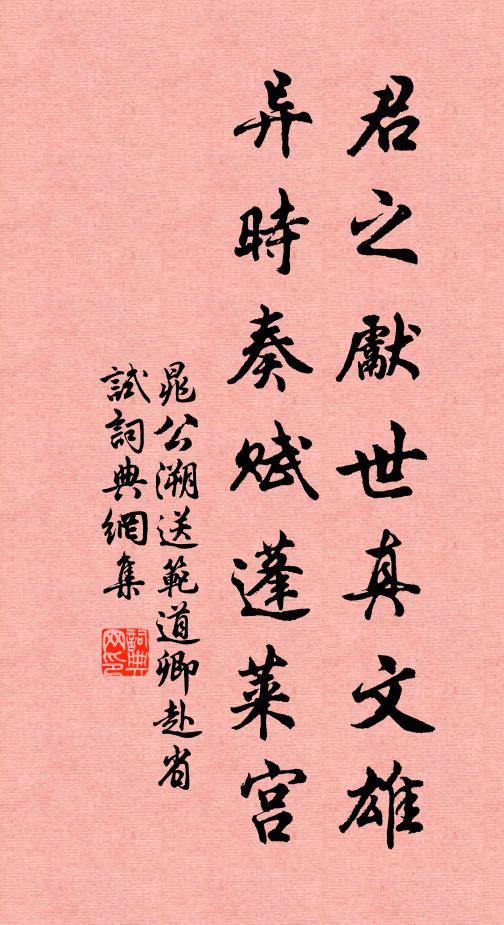 君之獻世真文雄
异時奏賦蓬莱宫
晁公溯送範道卿赴省
試詞典網集
詞典網印